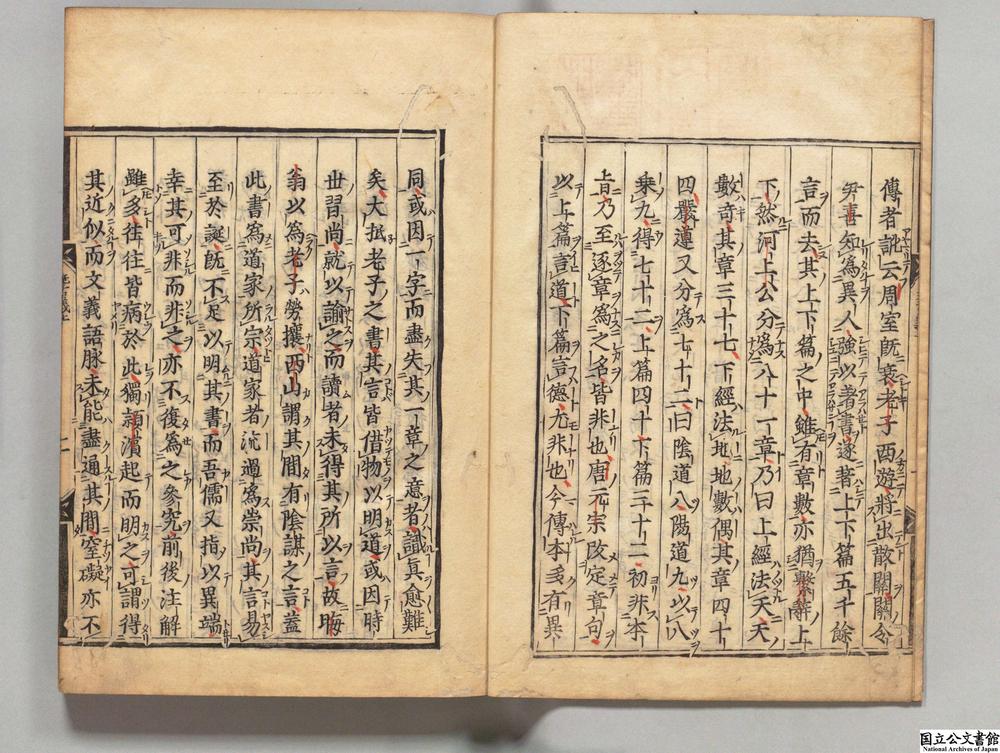 傳者訛云周室既衰老子西遊將出散關關令
尹喜知為異人強以著書遂著上下篇五千餘
言而去其上下篇之中雖有章數亦猶繫辭上
下然河上公分為八十一章乃曰上經法天天
數奇其章三十七下經法地地數偶其章四十
四嚴遵又分為七十二曰陰道八陽道九以八
乘九得七十二上篇四十下篇三十二初非本
旨乃至逐章為之名皆非也唐元宗改定章句
以上篇言道下篇言德尤非也今傳本多有異
同或因一字而盡失其一章之意者識真愈難
矣大抵老子之書其言皆借物以明道或因時
世習尚就以諭之而讀者未得其所以言故晦
翁以為老子勞攘西山謂其間有陰謀之言蓋
此書為道家所宗道家者流過為崇尚其言易
至於誕既不足以明其書而吾儒又指以異端
幸其可非而非之亦不復為之參究前後注解
雖多往往皆病於此獨穎濱起而明之可謂得
其近似而文義語脉未能盡通其間窒礙亦不
国立公文書館
National Archives of Japan